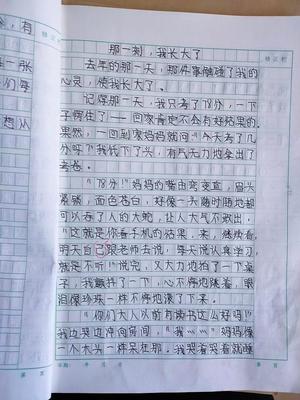 会，有
一张
们每
想从
那一刻，我长大了
去年的那一天，那件事触碰了我的
心灵，使我长大了。
记得那一天，我只考了78分，一下
子愣住了——回家肯定不会有好结果的。
果然，一回到家妈妈就问：“今天考了几
分呀？”我低下了头，有气无力地拿出了
考卷。
“78分！”妈妈的嘴由弯变直，眉头
紧锁，面色苍白，好像一条随时随地都
可以吞了人的大蛇，让人大气不敢出！
“这就是你看手机的结果，来，然后看，
明天自己跟老师去说，每天说认真学习，
就是不听！”说完，又大力地拍了一下桌
子，我颤抖了一下，心不停地跳着，眼
泪像珍珠一样不停地滚了下来。
“你们大人以前有读书这么好吗！”
我边哭边冲向房间，“我……”妈妈像
一个木头一样呆在那。我哭着哭着就睡